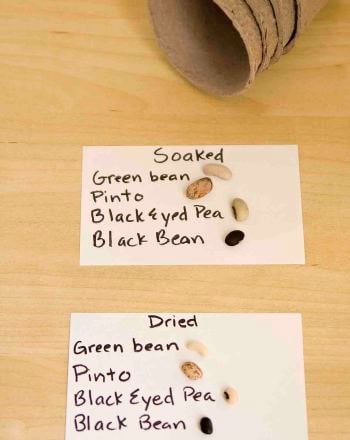 Soaked
Green bean
Pinto
Black Eyed Pea
Black Bean
Dried
Green bean
Pinto
Black Eyed Pea
Black Bean